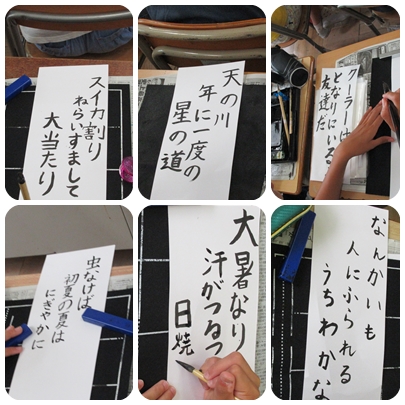 スイカ割り
ねらいすまして
大当たり
天の川
年に一度の
星の道
クーラーは
となりにいる
友達だ
虫なけば
初夏の夏は
にぎやかに
大暑なり
汗がつるつ
日焼
なんかいも
人にふられる
うちわかな